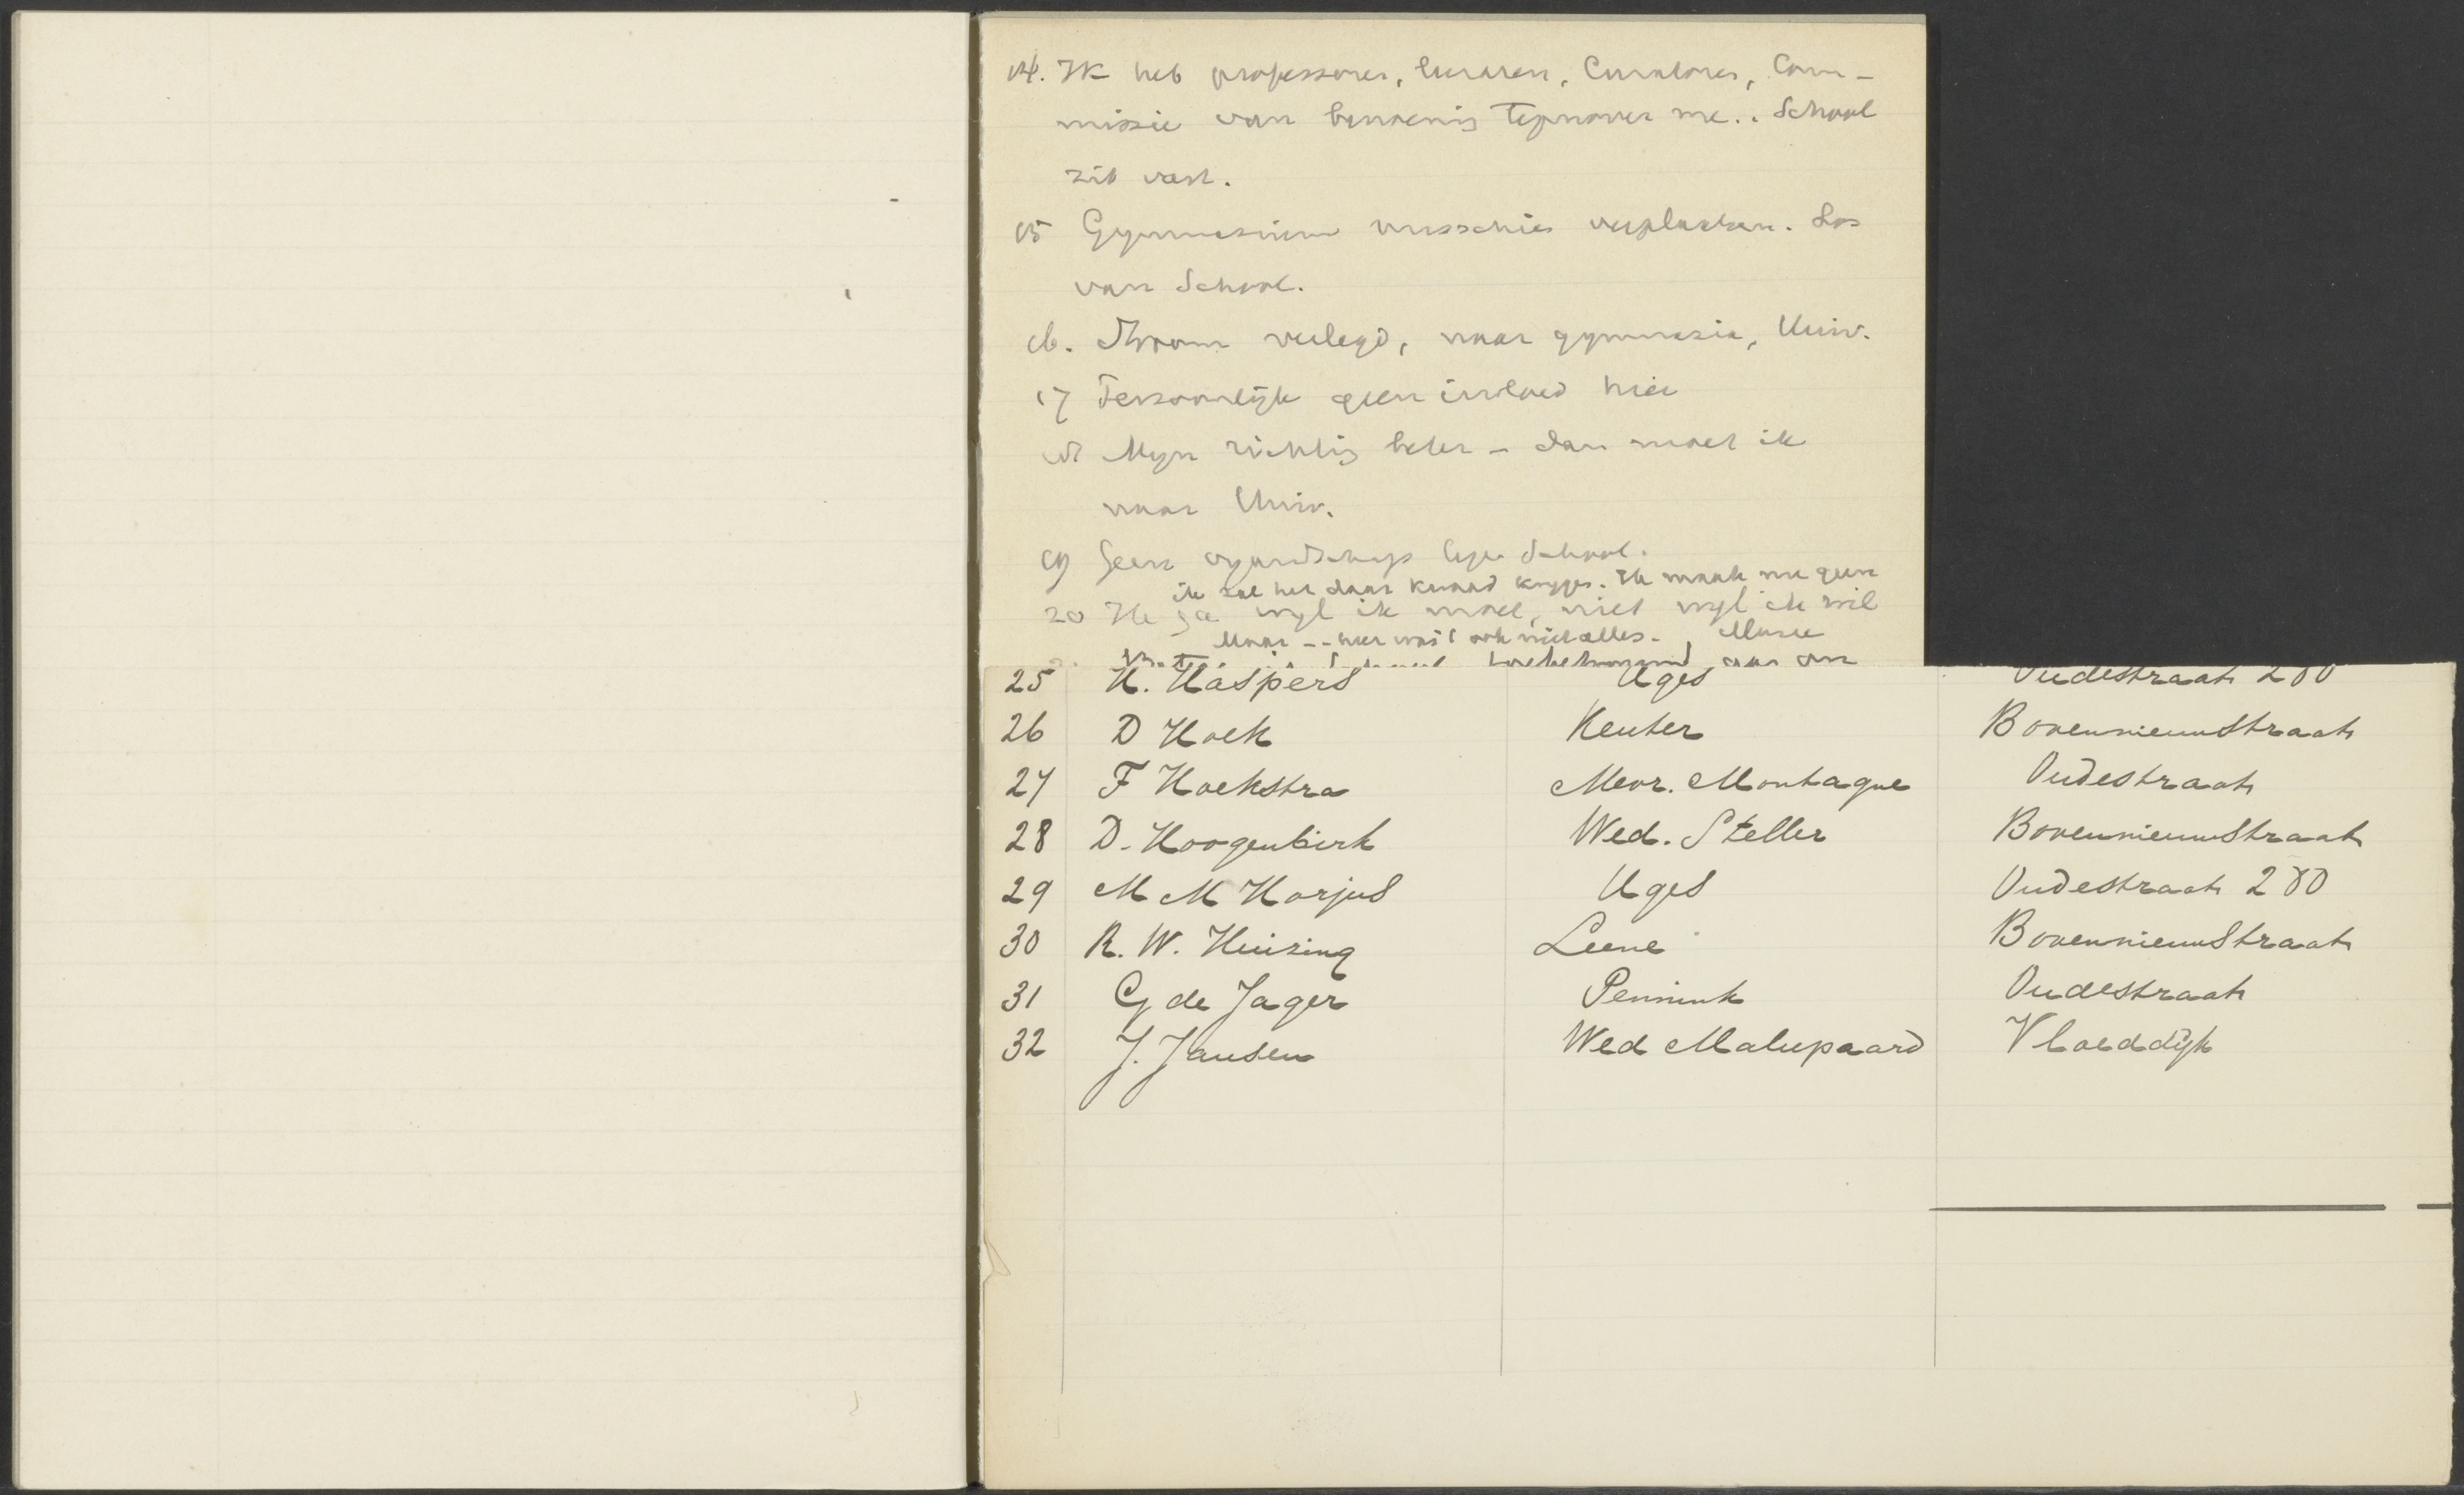 14. Ik heb professoren, leraren, Curatores, Com-
missie van benoeming tegenover me.. School
zit vast.
15 Gymnasium misschien verplaatsen. Los
van School.
16. Stroom verlegd, naar gymnasia, Univ.
17 Persoonlijk geen invloed hier
18 Mijn richting beter - dan moet ik
naar Univ.
19 Geen vijandschap tegen School.
ik zal het daar kwaad krijgen. Ik maak me geen
20 Ik ga wijl ik moet, niet wijl ik wil
Maar -- hier was 't ook niet alles.
25 H. Haspers Uges Oudestraat 200
26 D Hoek Keuter Bovennieuwstraat
27 F Hoekstra Mevr. Montagne Oudestraat
28 D. Hoogenbirk Wed. Steller Bovennieuwstraat
29 M M Horjus Uges Oudestraat 200
30 R. W. Huizing Leene Bovennieuwstraat
31 G de Jager Pennink Oudestraat
32 J. Jansen Wed Malepaard Vloeddijk